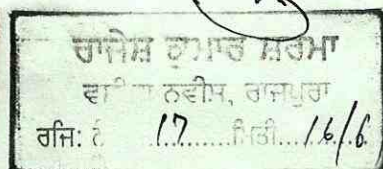 ਰਾਜੇਸ਼ ਕੁਮਾਰ ਸ਼ਰਮਾ
ਨਵੀਸ, ਰਾਜਪੁਰਾ
ਰਜਿ: ਨੰ 17 ਮਿਤੀ 16/6